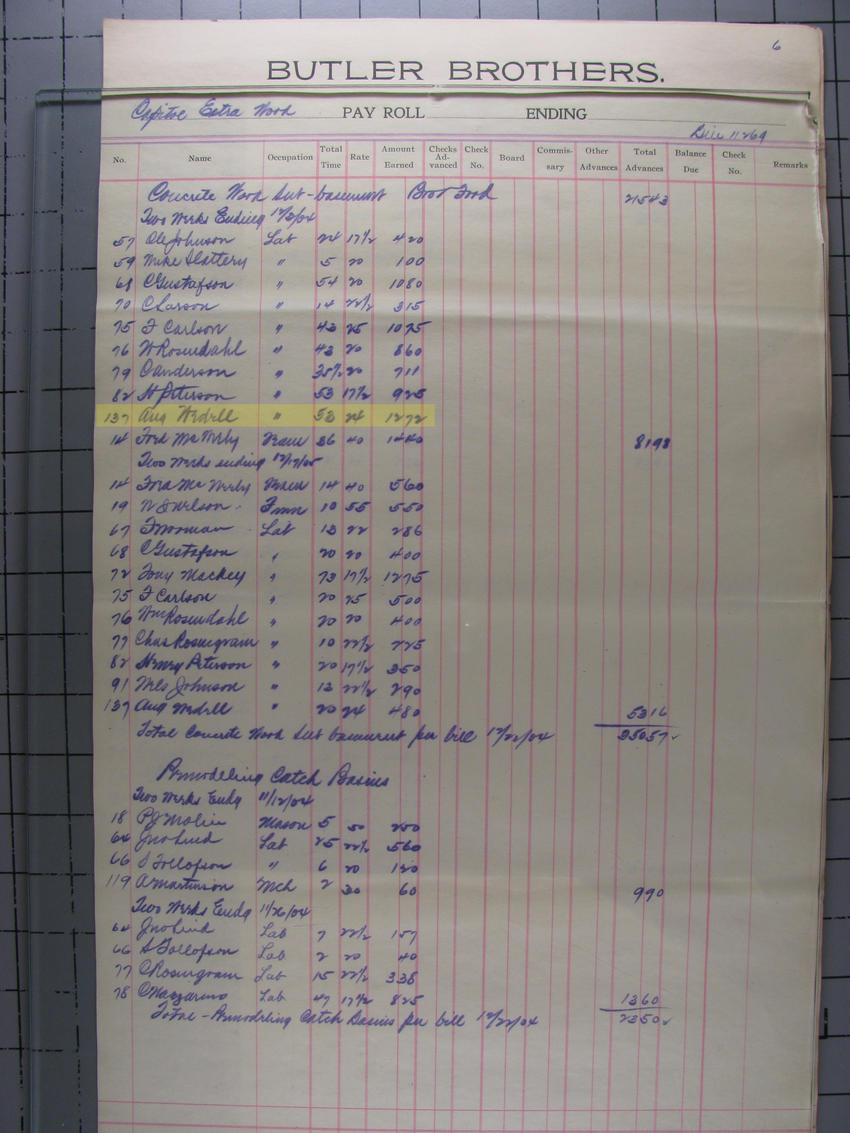 6
BUTLER BROTHERS.
Capitol Extra Work PAY ROLL ENDING
No. Name Occupation Total Time Rate Amount Earned Checks Ad-vanced Check No. Board Commis-sary Other Advances Total Advances Balance Due Check No. Remarks
Concrete Work Sub-basement 21543
Two Weeks Ending 12/3/04
57 Ole Johnson Lab 24 17½ 420
59 Mike Slattery " 5 20 100
68 C Gustafson " 54 20 1080
70 C Larson " 14 22½ 315
75 F Carlson " 43 25 1075
76 W Rosendahl " 43 20 860
79 C Anderson " 35½ 20 711
82 H Peterson " 53 17½ 925
137 Aug Wedell " 53 24 1272
14 Ford McNerby Team 36 40 1440 8198
Two Weeks ending 12/17/05
14 Ford McNerby Team 14 40 560
19 N S Nelson Fmn 10 55 550
67 F Norman Lab 13 22 286
68 C Gustafson " 20 20 400
72 Tony Mackey " 73 17½ 1275
75 F Carlson " 20 25 500
76 Wm Rosendahl " 20 20 400
77 Chas Rosengram " 10 22½ 225
82 Henry Peterson " 20 17½ 350
91 Nels Johnson " 13 22½ 290
137 Aug Wedell " 20 24 480 5316
Total Concrete Work Sub basement per bill 12/22/04 35057
Remodeling Catch Basins
Two Weeks Endg 11/12/04
18 P J Malin Mason 5 50 250
64 Jno Lind Lab 25 22½ 560
66 S Tollofson " 6 20 120
119 A Martinson Mch 2 30 60 990
Two Weeks Endg 11/26/04
64 Jno Lind Lab 7 22½ 157
66 S Tollofson Lab 2 20 40
77 C Rosengram Lab 15 22½ 338
78 C Nazzareno Lab 47 17½ 825 1360
Total - Remodeling Catch Basins per bill 12/22/04 2350